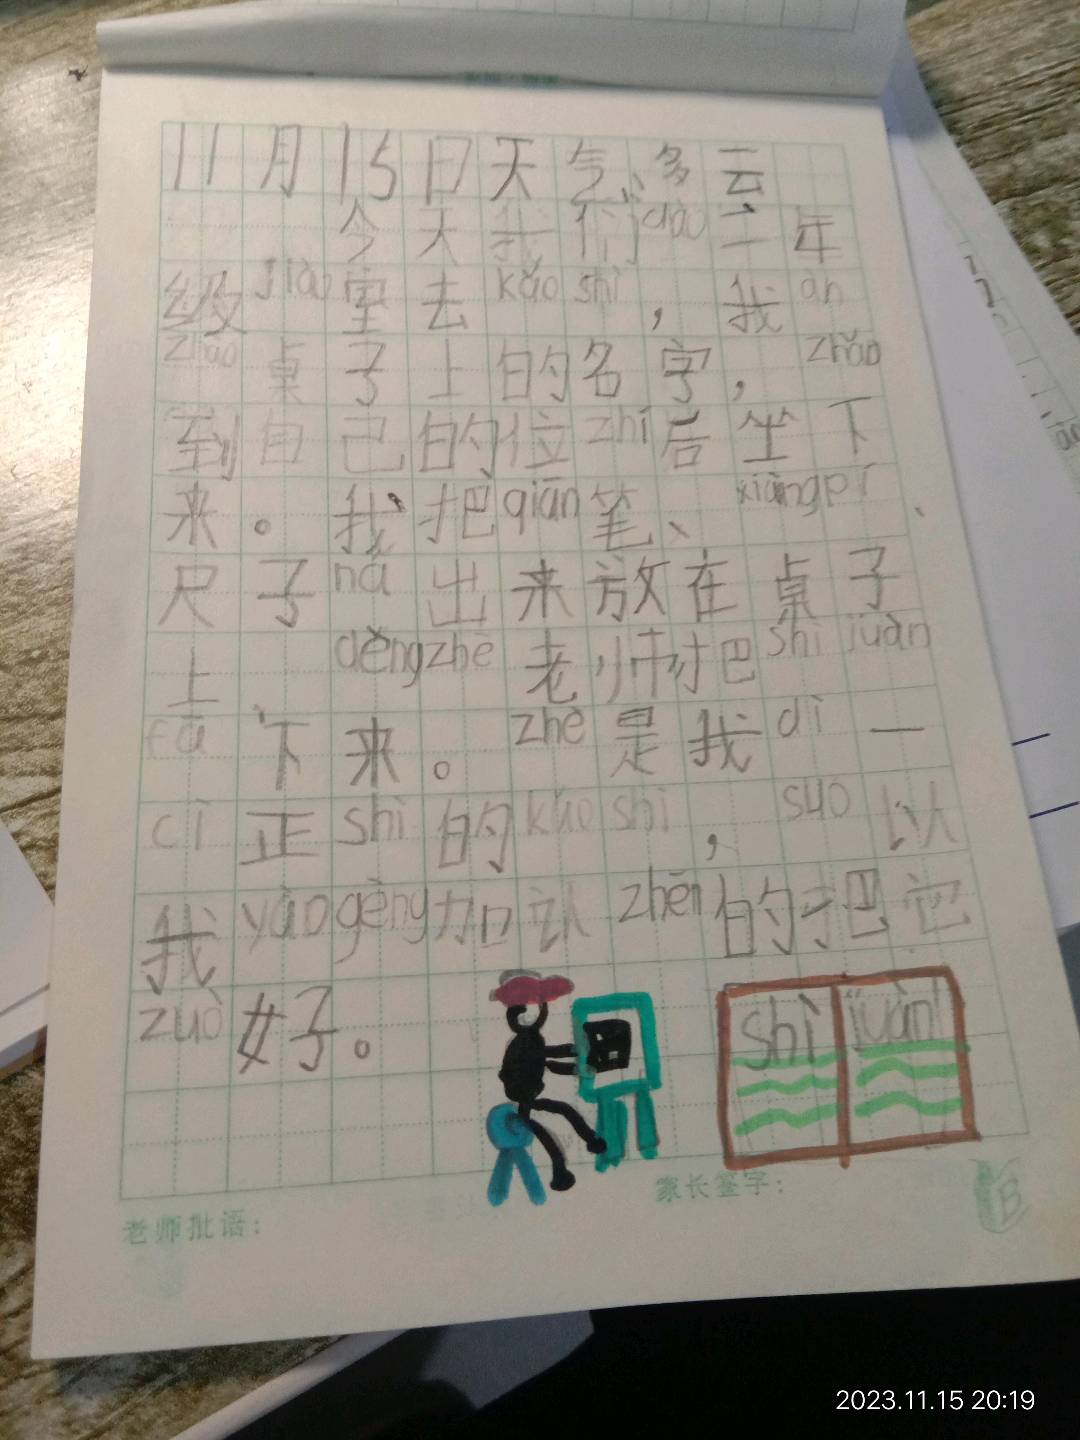 11月15日天气,多云
今天我们dào二年
级jiào室去kǎo shì,我àn
zhào桌子上的名字,zhǎo
到自己的位zhì后坐下
来。我把qiān笔、xiàngpí、
尺子ná出来放在桌子
上,děngzhe老师把shì juàn
fā下来。zhè是我dì一
cì正shì的kǎo shì,suǒ以
我yào gèng加认zhēn的把它
zuò好子。
shì juàn
老师批语:
家长签字:
2023.11.15 20:19